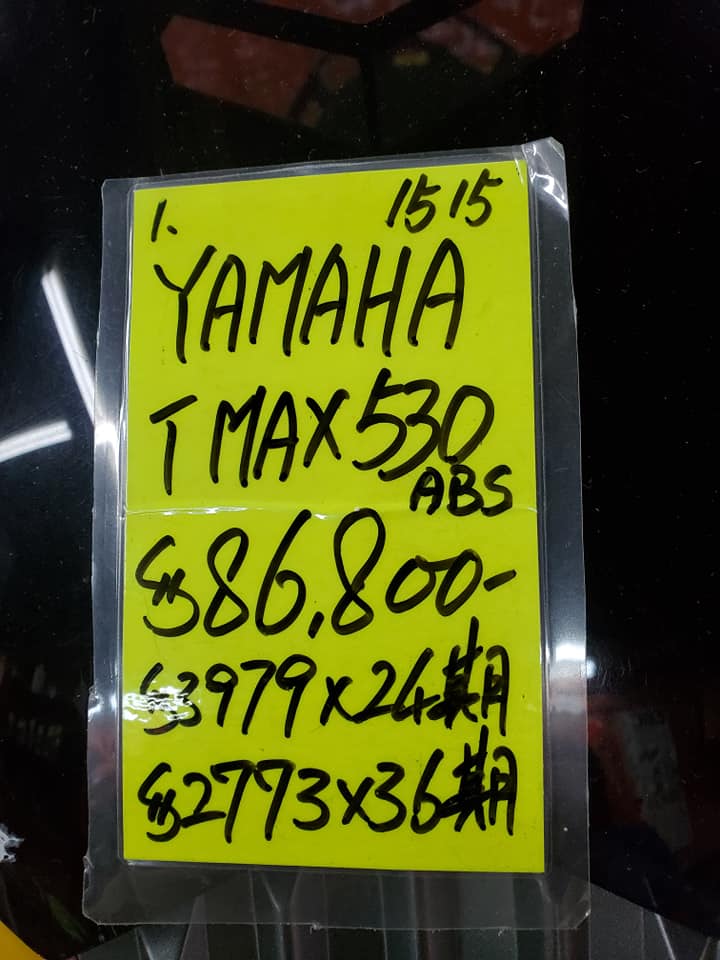 1. 1515
YAMAHA
TMAX530
ABS
$86,800-
$3979x24期
$2773x36期